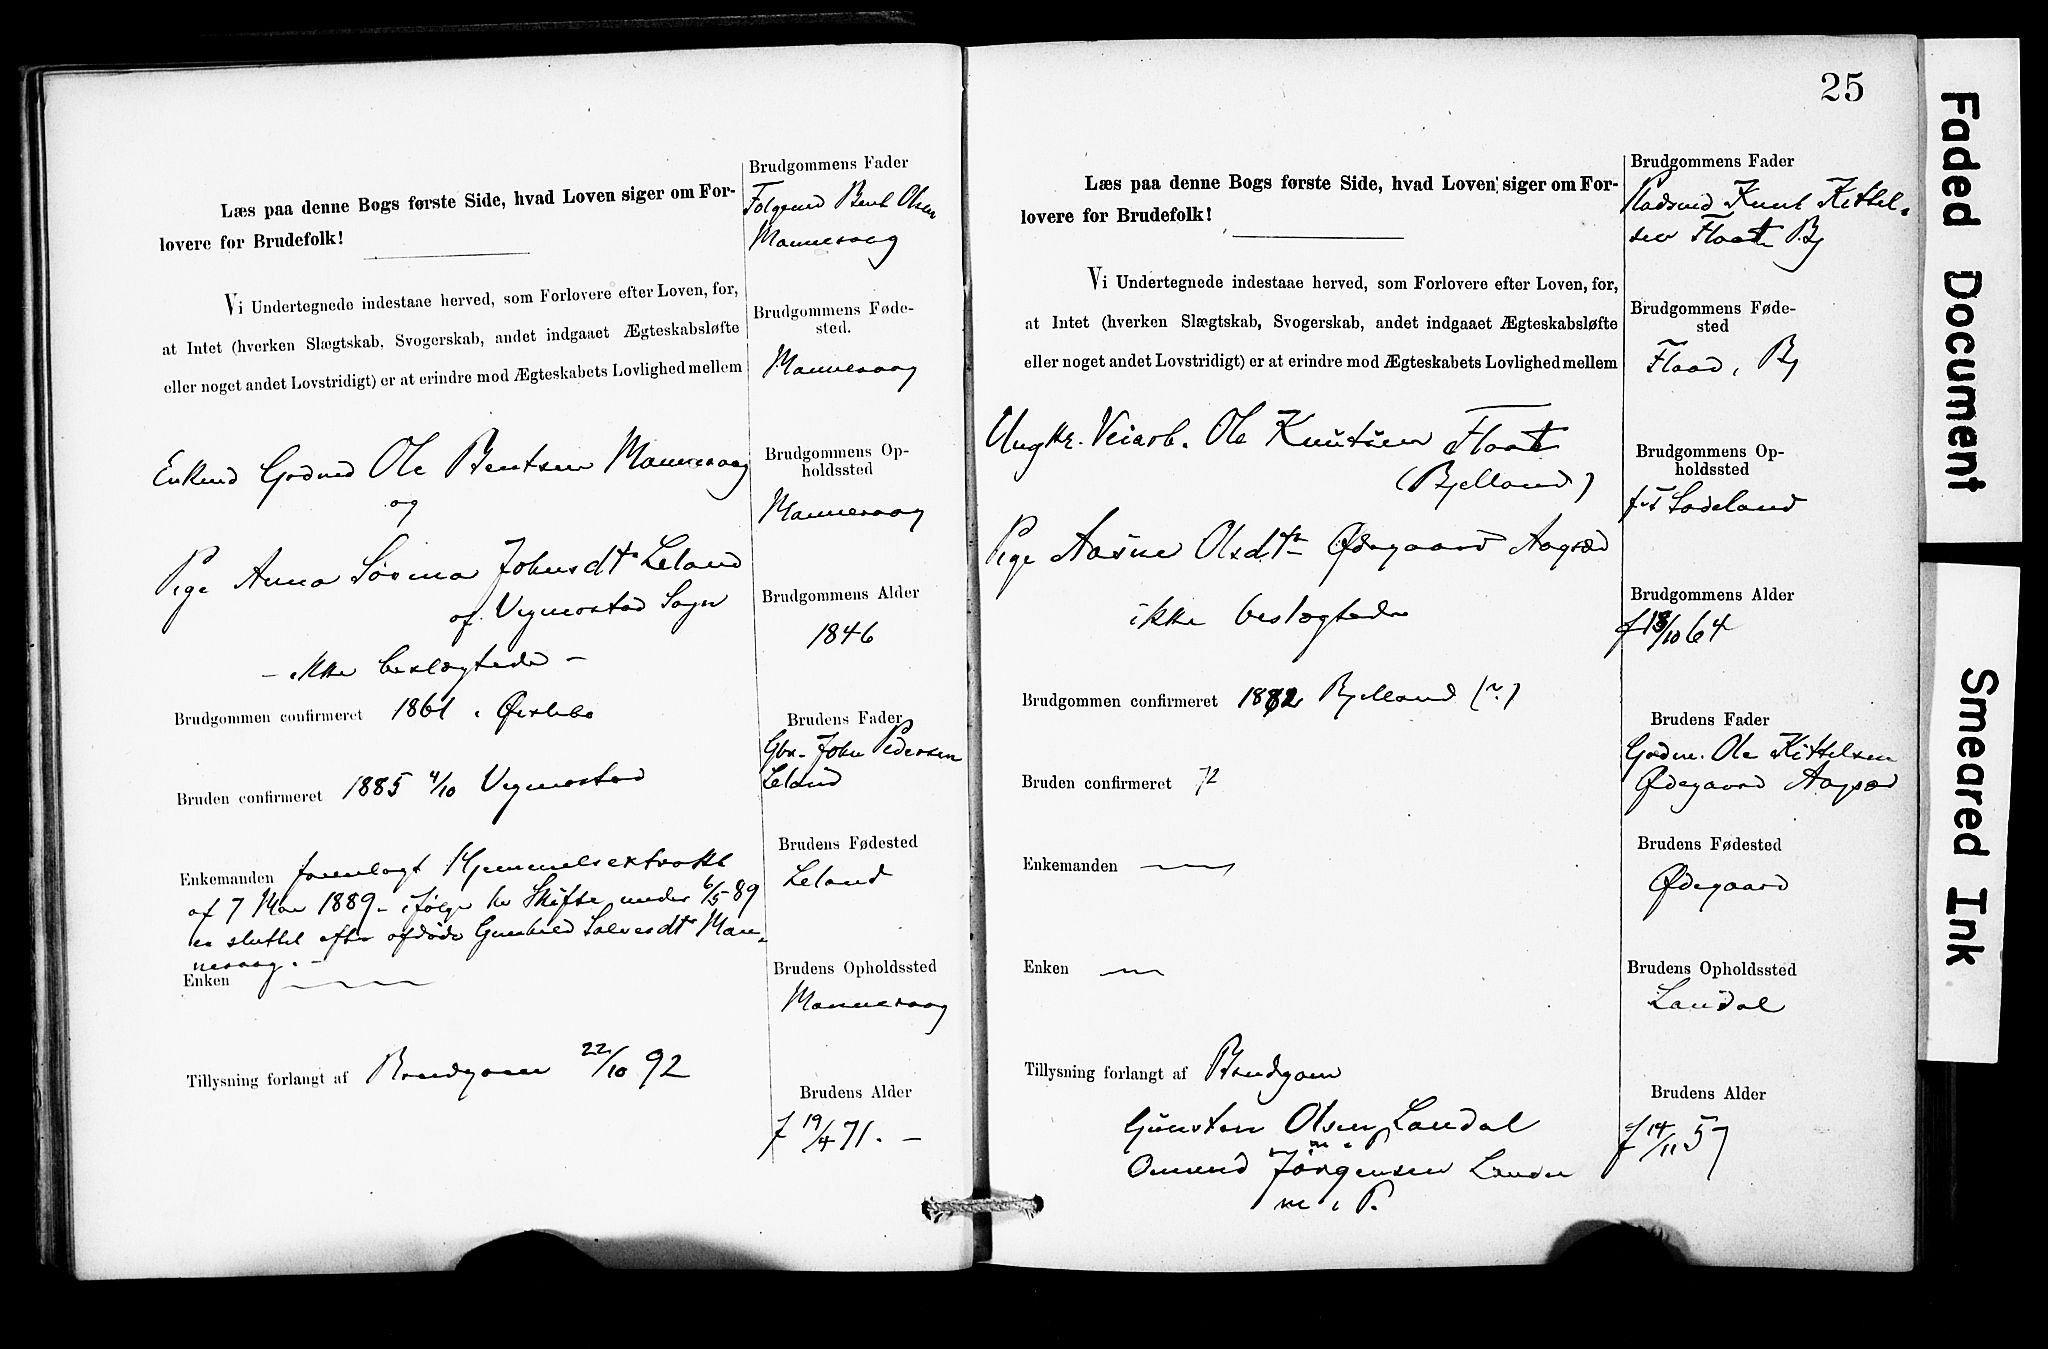 Læs paa denne Bogs første Side, hvad Loven siger om For-
lovere for Brudefolk!
Vi Undertegnede indestaae herved, som Forlovere efter Loven, for,
at Intet (hverken Slægtskab, Svogerskab, andet indgaaet Ægteskabsløfte
eller noget andet Lovstridigt) er at erindre mod Ægteskabets Lovlighed mellem
Enkmd Gdmd Ole Bentsen Mannevaag
og
Pige Anna Sørina Johnsdtr Leland
af Vigmostad Sogn
- ikke beslægtede -
Brudgommen confirmeret 1861 i Øislebø
Bruden confirmeret 1885 4/10 Vigmostad
Enkemanden foreviist Hjemmelsextrakt
af 7 Mai 1889 - ifølge hv Skifte under 6/5 89
er sluttet efter afdøde Gunhild Salvesdtr Man-
nevaag. -
Enken
Tillysning forlangt af Brudgom 22/10 92
Brudgommens Fader
Folgemd Bent Olsen
Mannevaag
Brudgommens Føde-
sted.
Mannevaag
Brudgommens Op-
holdssted
Mannevaag
Brudgommens Alder
1846
Brudens Fader
Gbr. John Pedersen
Leland
Brudens Fødested
Leland
Brudens Opholdssted
Mannevaag
Brudens Alder
f 19/4 71. -
25
Læs paa denne Bogs første Side, hvad Loven siger om For-
lovere for Brudefolk!
Vi Undertegnede indestaae herved, som Forlovere efter Loven, for,
at Intet (hverken Slægtskab, Svogerskab, andet indgaaet Ægteskabsløfte
eller noget andet Lovstridigt) er at erindre mod Ægteskabets Lovlighed mellem
Ungkr. Veiarb. Ole Knutsen Flaat
(Bjelland)
Pige Aasne Olsdtr Ødegaard Aagsæd
ikke beslægtede
Brudgommen confirmeret 1882 Bjelland (?)
Bruden confirmeret 72
Enkemanden
Enken
Tillysning forlangt af Brudgom
Gunsten Olsen Landal
m. i P.
Omund Jörgensen
m i P.
Brudgommens Fader
Pladsmd Knut Kittel-
sen Flaat Bj
Brudgommens Føde-
sted
Flaad, Bj
Brudgommens Op-
holdssted
Lodeland
Brudgommens Alder
f 18/10 64
Brudens Fader
Gdm. Ole Kittelsen
Ødegaard Aagsæd
Brudens Fødested
Ødegaard
Brudens Opholdssted
Landal
Brudens Alder
f 14/11 57
Faded Document
Smeared Ink